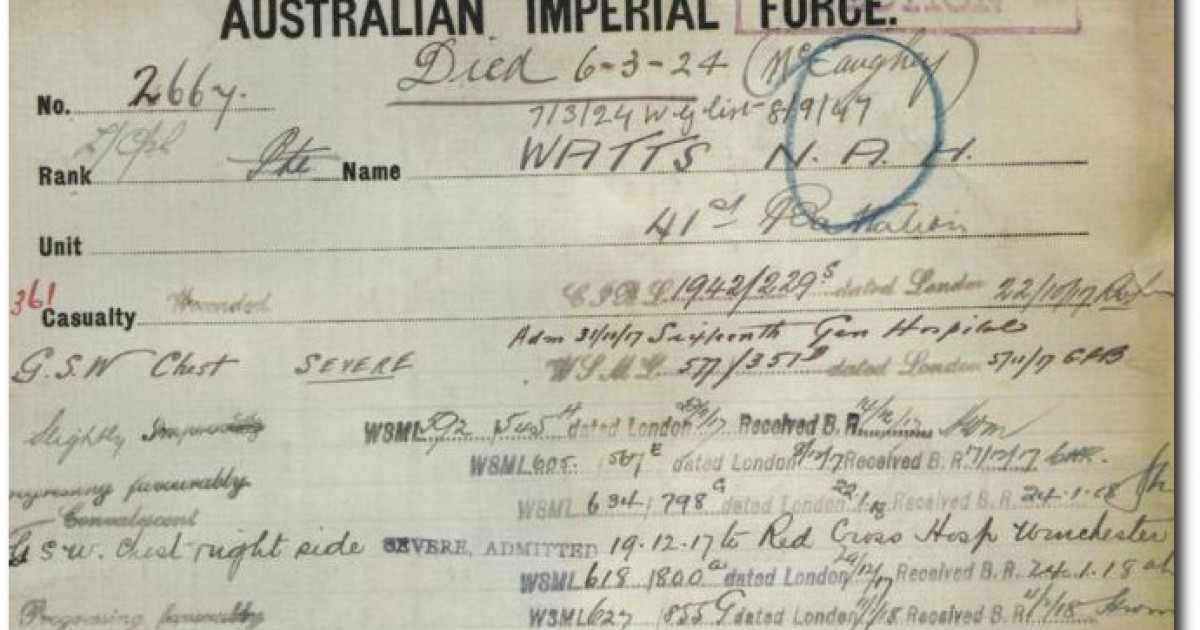 AUSTRALIAN IMPERIAL FORCE.
Died 6-3-24 (McCaughey)
No. 2667.
7/3/24 list 8/9/47
L/Cpl
Rank Pte Name WATTS N. A. H.
Unit 41st Battalion
361
Casualty Wounded 1942/229 dated London 22/10/17
Adm 31/10/17 Sixteenth Gen Hospital
G.S.W Chest SEVERE W.S.M.L. 577/351 dated London 5/11/17
Slightly WSML 592 545 dated London Received B.R.
WSML 605. 567E dated London Received B.R. 7/12/17
progressing favourably
WSML 634/798 dated London 22.1.18 Received B.R. 24.1.18
Convalescent
G.S.W. Chest right side SEVERE, ADMITTED 19.12.17 to Red Cross Hosp Winchester
WSML 618 1800a dated London Received B.R. 24.1.18
Progressing favourably WSML 627 855G dated London Received B.R.